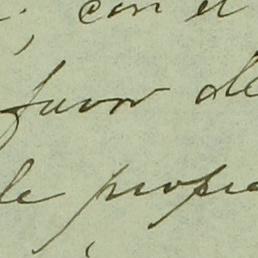 ; con el
favor de
de propie